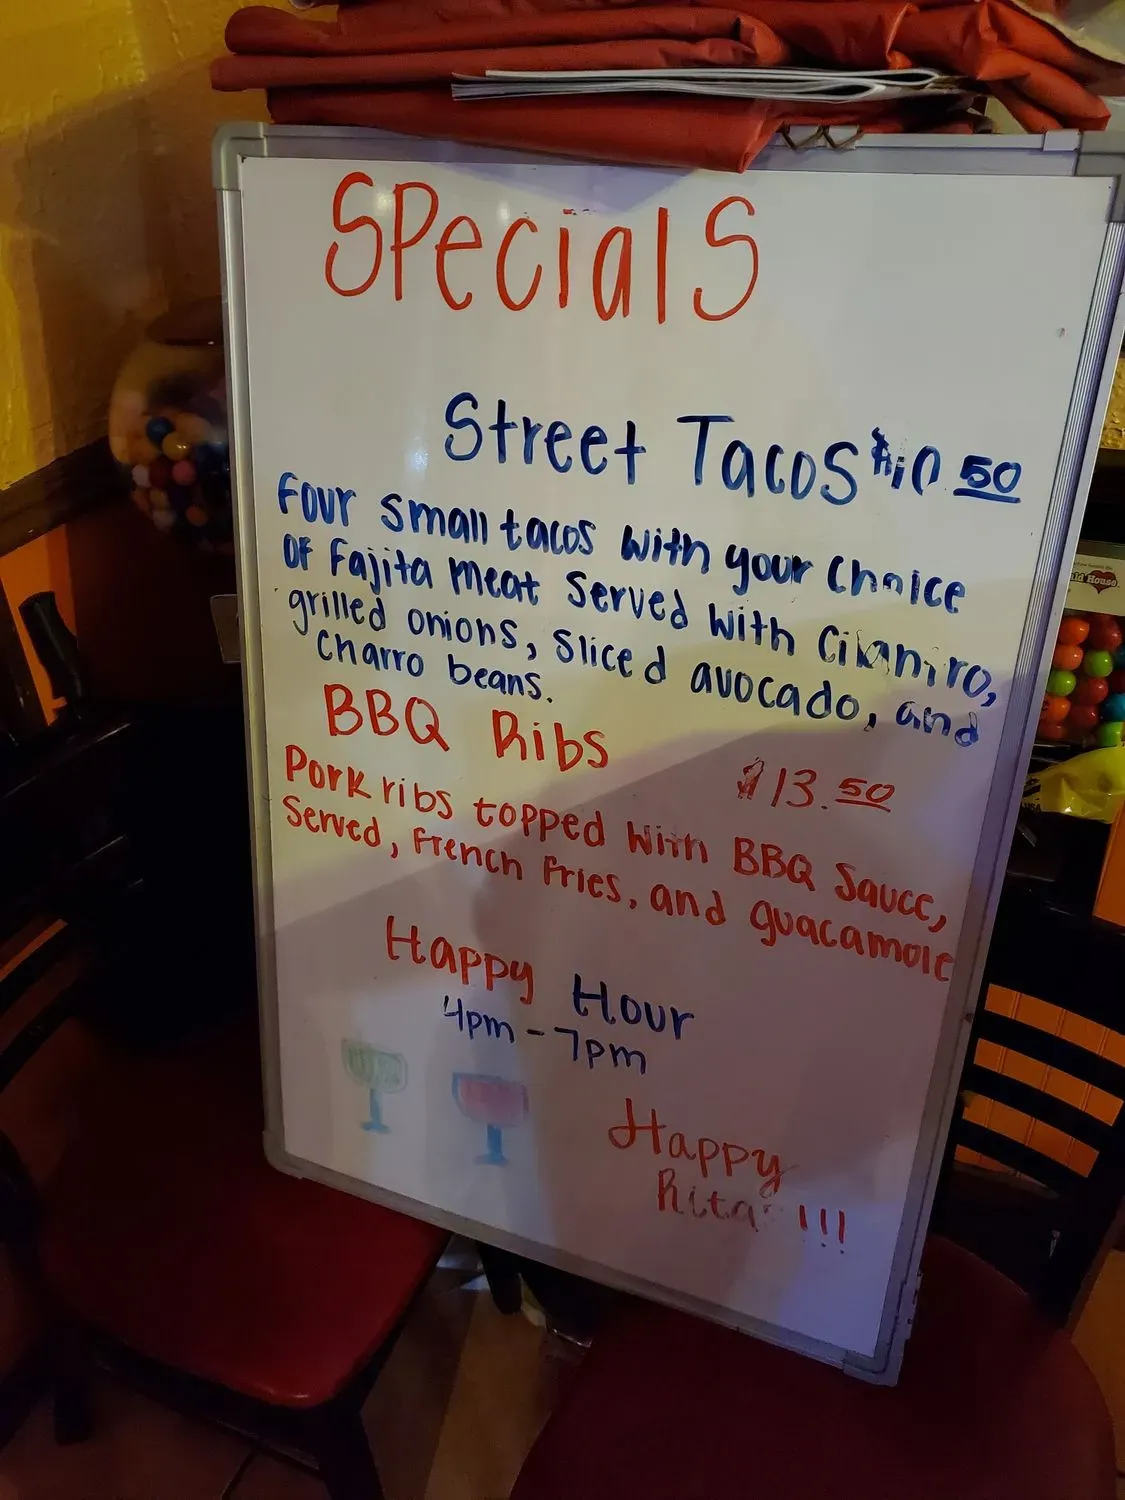 Specials
Street Tacos $10.50
Four small tacos with your choice
of Fajita meat served with Cilantro,
grilled onions, sliced avocado, and
charro beans.
BBQ Ribs
$13.50
Pork ribs topped with BBQ Sauce,
Served, French Fries, and guacamole
Happy Hour
4pm - 7pm
Happy
Ritas !!!